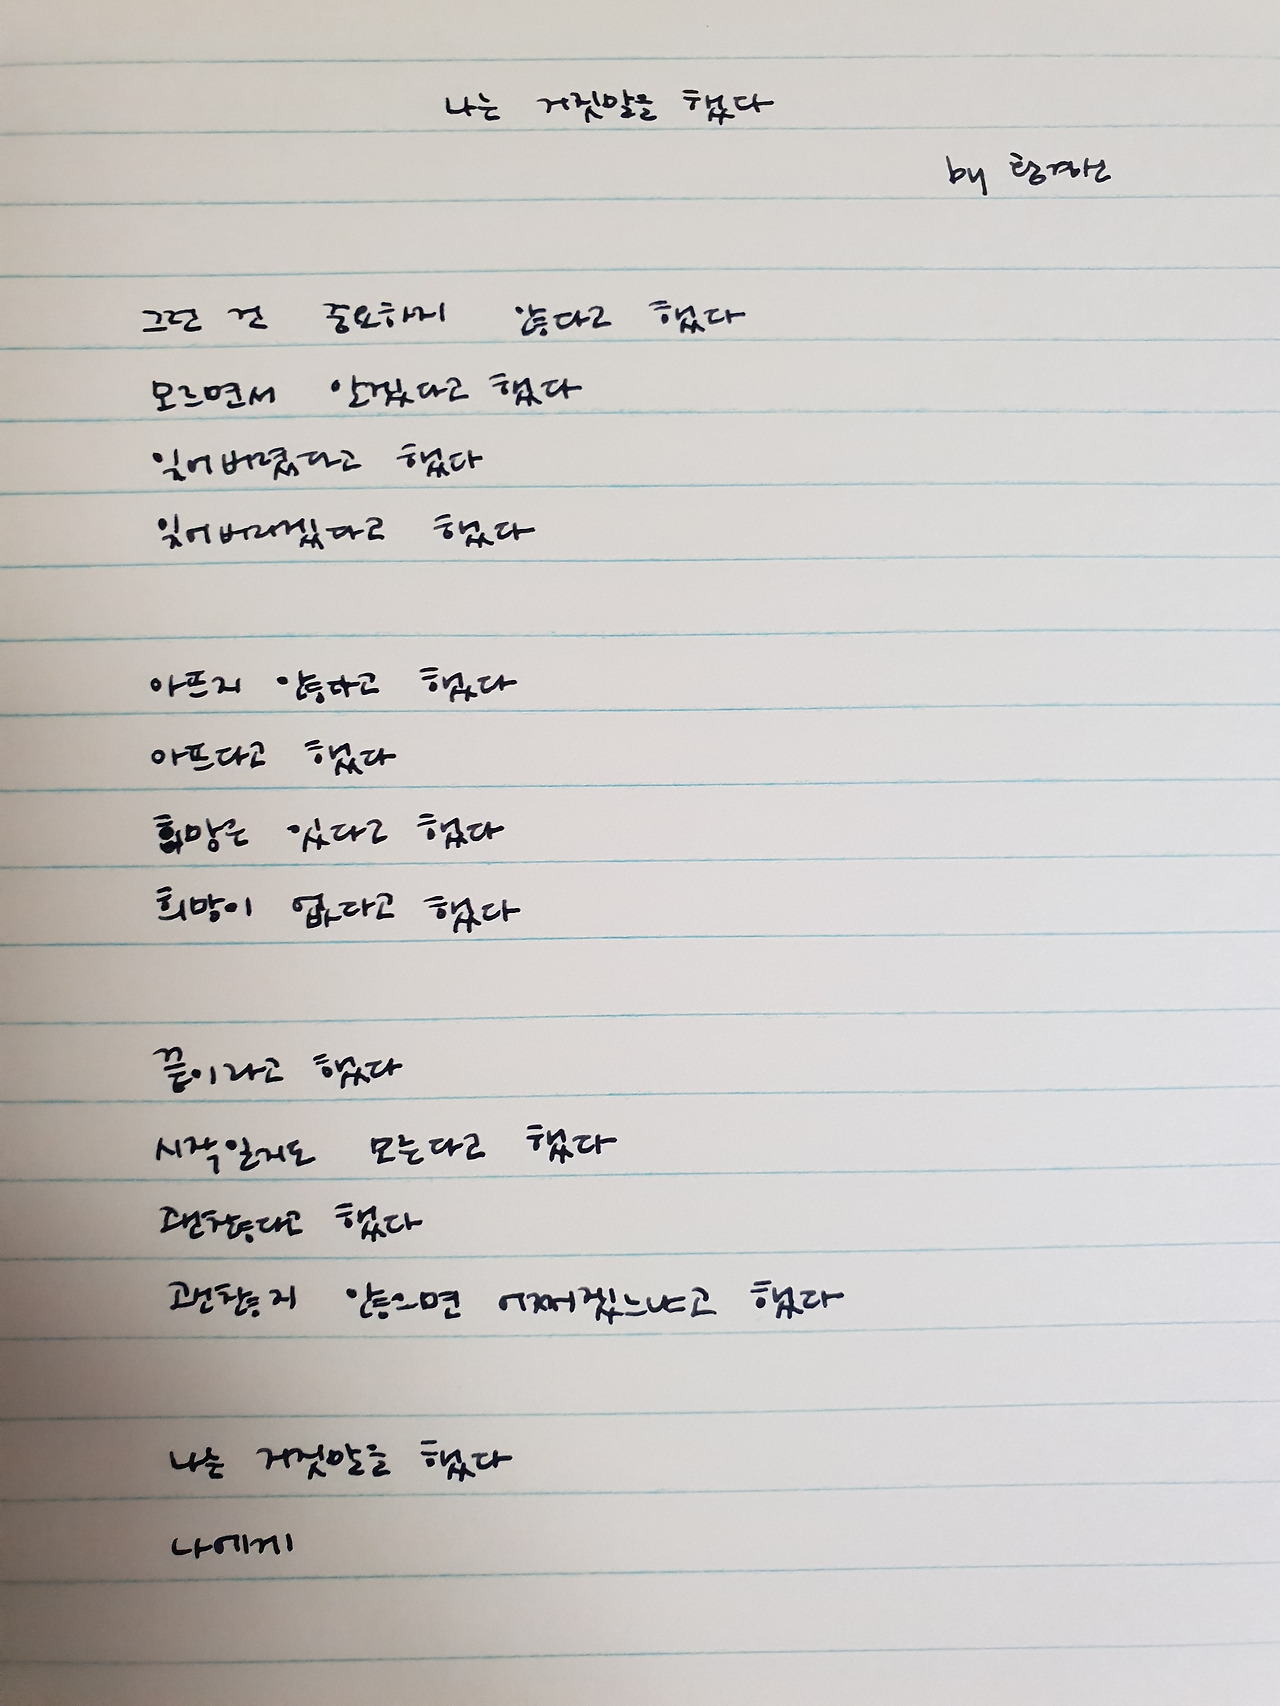 나는 거짓말을 했다
by 황경신
그런 건 중요하지 않다고 했다
모르면서 알겠다고 했다
잊어버렸다고 했다
잊어버리겠다고 했다
아프지 않다고 했다
아프다고 했다
희망은 있다고 했다
희망이 없다고 했다
끝이라고 했다
시작일지도 모른다고 했다
괜찮다고 했다
괜찮지 않으면 어쩌겠느냐고 했다
나는 거짓말을 했다
나에게